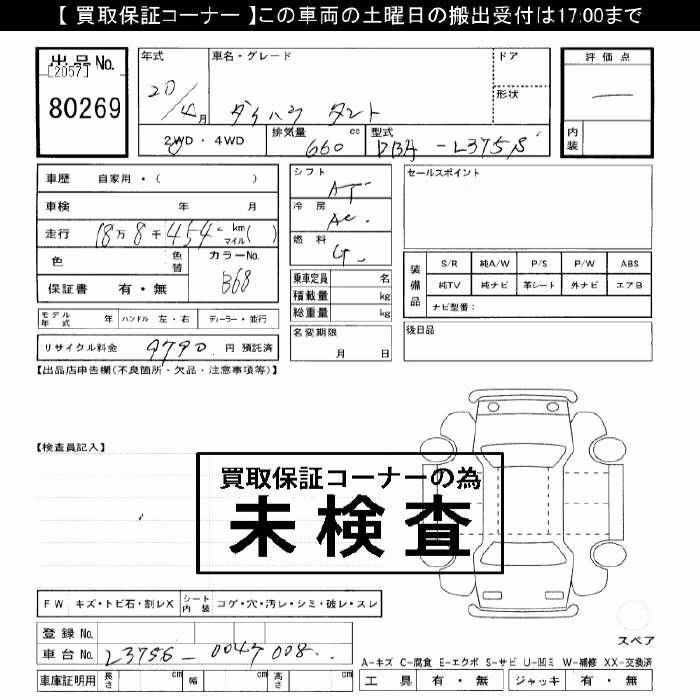 【 買取保証コーナー 】この車両の土曜日の搬出受付は17:00まで
出品No.
[2057]
80269
年式
20/4月
車名・グレード
ダイハツ タント
ドア
形状
2WD・4WD
排気量 660 cc
型式 DBA-L375S
評価点
内装
車歴 自家用・( )
車検 年 月
走行 18万8千454 km マイル( )
色 色替 カラーNo. B68
保証書 有・無
シフト AT
冷房 AC
燃料 G
乗車定員 名
積載量 kg
総重量 kg
セールスポイント
装備品
S/R 純A/W P/S P/W ABS
純TV 純ナビ 革シート 外ナビ エアB
ナビ型番:
モデル年式 年 ハンドル 左・右 ディーラー・並行
名変期限 月 日
後日品
リサイクル料金 9790 円 預託済
【出品店申告欄(不良箇所・欠品・注意事項等)】
【検査員記入】
買取保証コーナーの為
未検査
FW キズ・トビ石・割レX シート内装 コゲ・穴・汚レ・シミ・破レ・スレ
スペア
登録No.
車台No. L375S-0047008
車庫証明用 長さ cm 幅 cm 高さ cm
A-キズ C-腐食 E-エクボ S-サビ U-凹ミ W-補修 XX-交換済
工具 有・無 ジャッキ 有・無